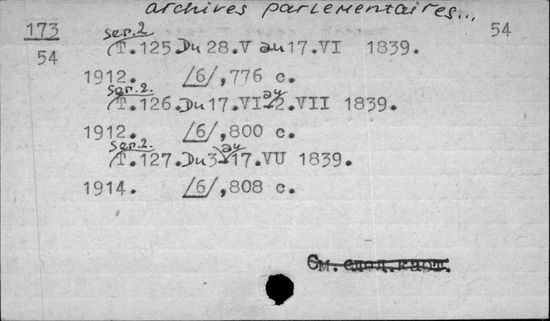 archives parlementaires...
173 54
54
ser.2.
(T.125.Du 28.V au 17.VI 1839.
1912. /6/,776 c.
ser.2.
(T.126.Du 17.VI au 2.VII 1839.
1912. /6/,800 c.
ser.2.
(T.127.Du 3 au 17.VU 1839.
1914. /6/,808 c.
См. след. карт.